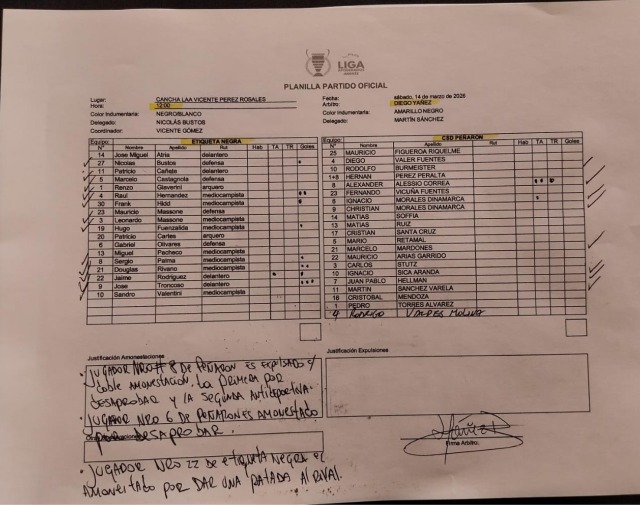 LIGA
PLANILLA PARTIDO OFICIAL
Lugar: CANCHA LAA VICENTE PEREZ ROSALES
Hora: 12:00
Color Indumentaria: NEGRO/BLANCO
Delegado: NICOLÁS BUSTOS
Coordinador: VICENTE GÓMEZ
Fecha: sábado, 14 de marzo de 2026
Arbitro: DIEGO YAÑEZ
Color Indumentaria: AMARILLO NEGRO
Delegado: MARTÍN SÁNCHEZ
Equipo: ETIQUETA NEGRA
N° Nombre Apellido Rut Hab TA TR Goles
14 Jose Miguel Atria delantero
27 Nicolas Bustos defensa
11 Patricio Cañete delantero
5 Marcelo Castagnola defensa
1 Renzo Giaverini arquero
4 Raul Hernandez mediocampista
30 Frank Hidd mediocampista
23 Mauricio Massone defensa
3 Leonardo Massone mediocampista
19 Hugo Fuenzalida mediocampista
20 Patricio Cartes arquero
6 Gabriel Olivares defensa
13 Miguel Pacheco mediocampista
8 Sergio Palma mediocampista
21 Douglas Rivano mediocampista
22 Jaime Rodriguez delantero
9 Jose Troncoso delantero
10 Sandro Valentini mediocampista
Equipo: CSD PEÑARON
N° Nombre Apellido Rut Hab TA TR Goles
25 MAURICIO FIGUEROA RIQUELME
4 DIEGO VALER FUENTES
10 RODOLFO BURMEISTER
1+8 HERNAN PEREZ PERALTA
8 ALEXANDER ALESSIO CORREA
23 FERNANDO VICUÑA FUENTES
6 IGNACIO MORALES DINAMARCA
9 CHRISTIAN MORALES DINAMARCA
14 MATIAS SOFFIA
13 MATIAS RUIZ
17 CRISTIAN SANTA CRUZ
5 MARIO RETAMAL
21 MARCELO MARDONES
22 MAURICIO ARIAS GARRIDO
3 CARLOS STUTZ
10 IGNACIO SICA ARANDA
7 JUAN PABLO HELLMAN
11 MARTIN SANCHEZ VARELA
16 CRISTOBAL MENDOZA
1 PEDRO TORRES ALVAREZ
4 RODRIGO VALDES MOLINA
Justificación Amonestaciones
· JUGADOR NRO# 8 DE PEÑARON ES EXPULSADO X
DOBLE AMONESTACIÓN, LA PRIMERA POR
DESAPROBAR Y LA SEGUNDA ANTIDEPORTIVA.
· JUGADOR NRO 6 DE PEÑARON ES AMONESTADO
POR DESAPROBAR.
· JUGADOR NRO 22 DE ETIQUETA NEGRA ES
AMONESTADO POR DAR UNA PATADA AL RIVAL.
Justificación Expulsiones
Firma Arbitro: